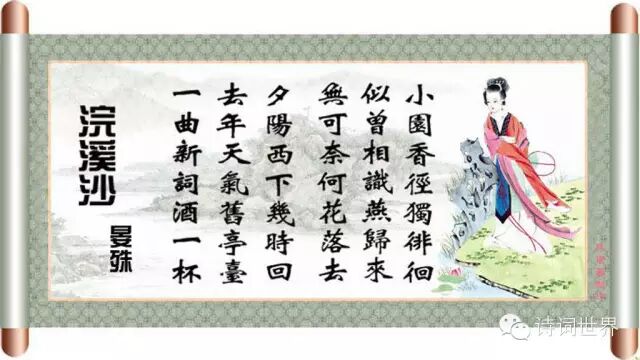 浣溪沙
晏殊
一曲新詞酒一杯
去年天氣舊亭臺
夕陽西下幾時回
無可奈何花落去
似曾相識燕歸來
小園香徑獨徘徊
诗词世界